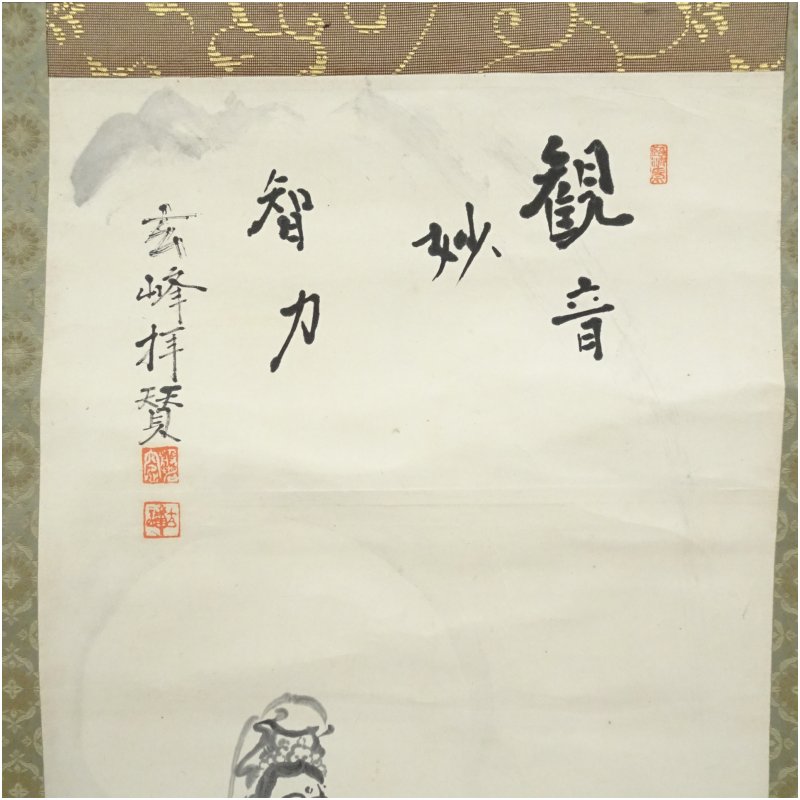 観音
妙
智力
玄峰拝賛